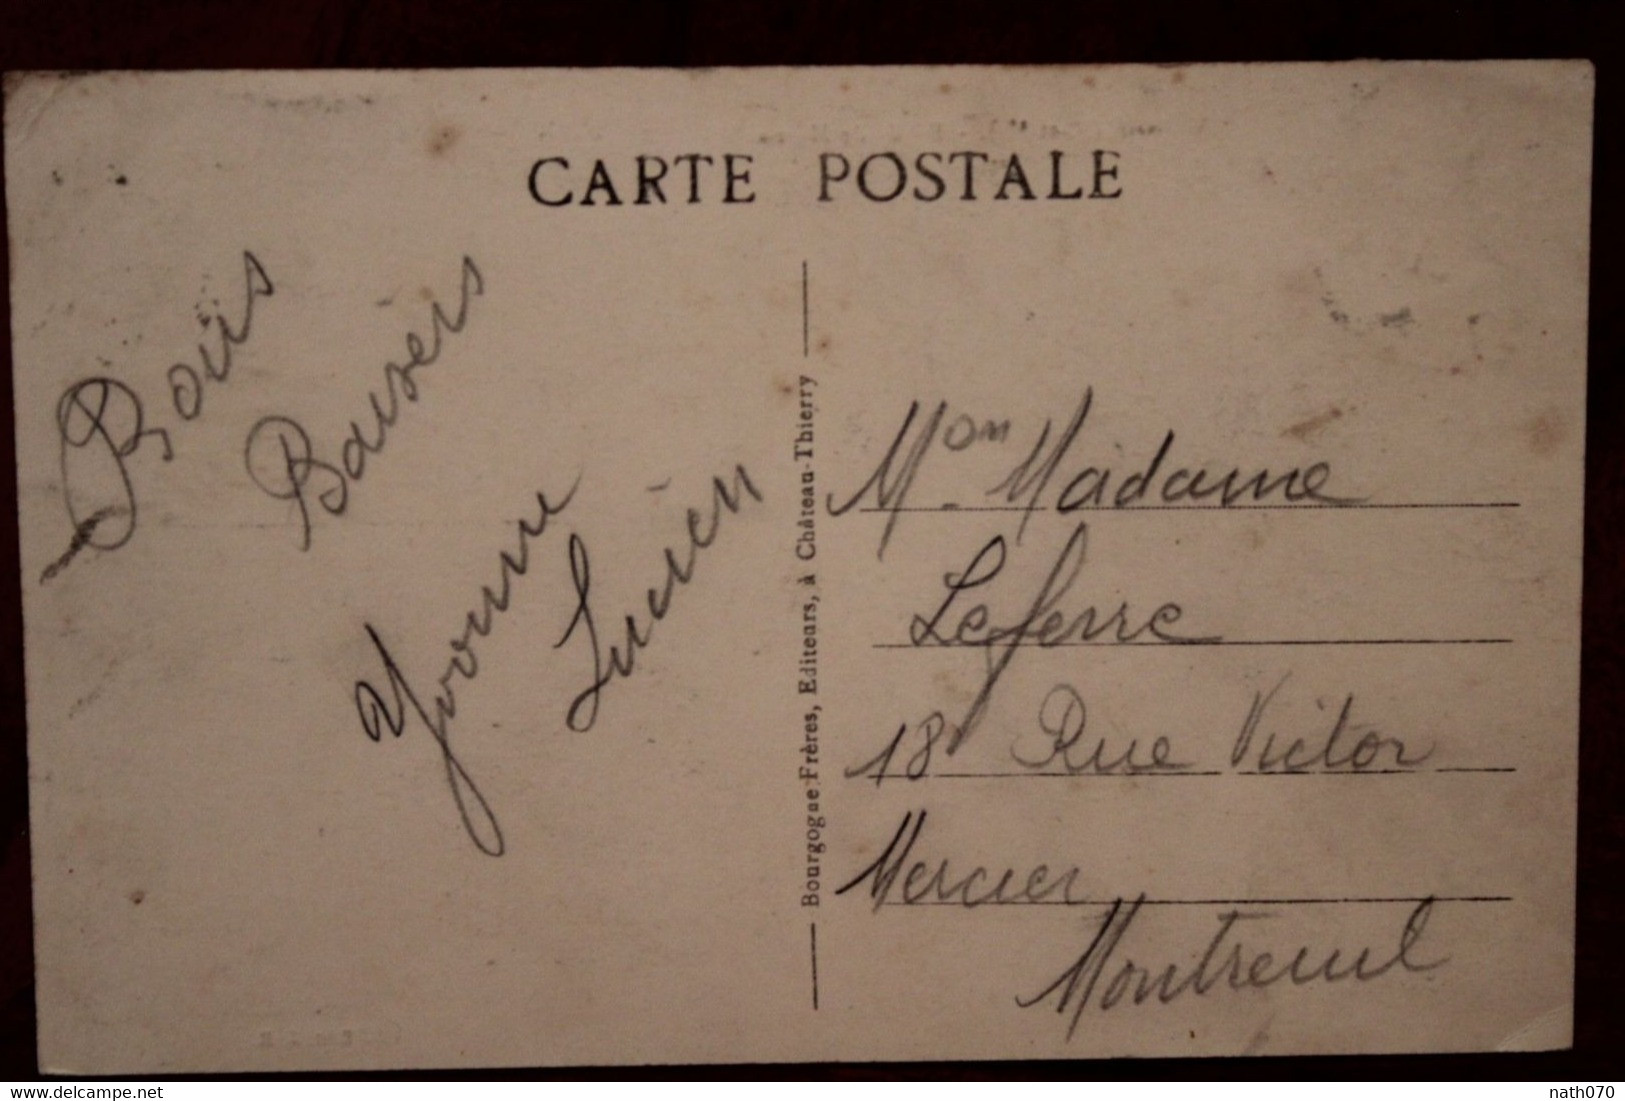 CARTE POSTALE
Bons
Baisers
Yvonne
Lucien
Bourgogne Frères, Editeurs, à Château-Thierry
Mon. Madame
Lefevre
18 Rue Victor
Mercier
Montreuil
delcampe.net
nath070